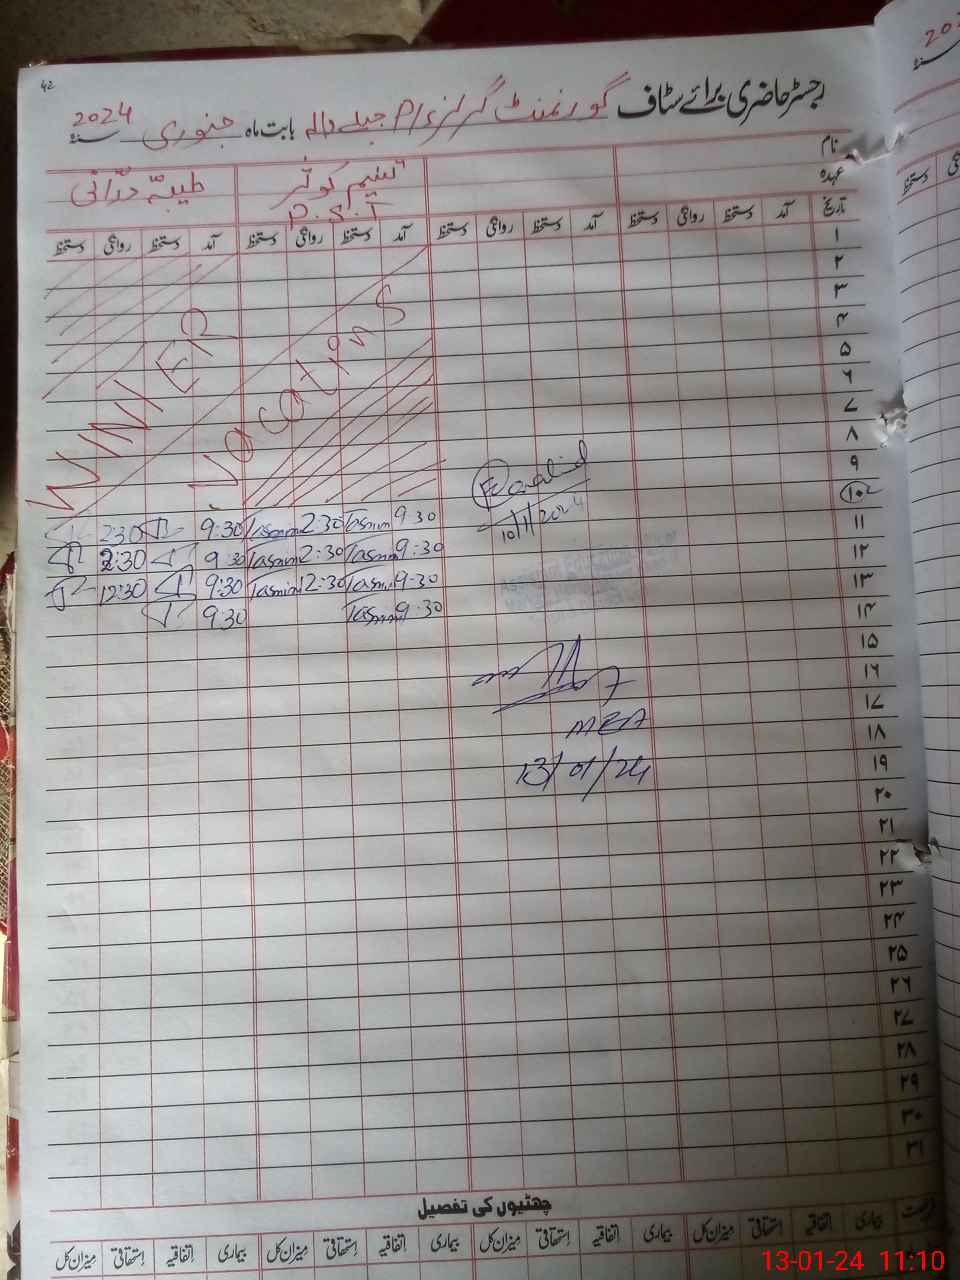 42
رجسٹر حاضری برائے سٹاف گورنمنٹ گرلز P/S جبلے والہ بابت ماہ جنوری سنہ 2024
نام
عہدہ
تسنیم کوثر
طیبہ درّانی
P.S.T
تاریخ آمد دستخط روانگی دستخط آمد دستخط روانگی دستخط آمد دستخط روانگی دستخط آمد دستخط روانگی دستخط
WINTER
Vacations
۱
۲
۳
۴
۵
۶
۷
۸
۹
۱۰
10/1/2024
۱۱ 9:30 Tasnim 2:30 Tasnim 9:30 2:30
۱۲ 9:30 Tasnim 2:30 Tasnim 9:30 2:30
۱۳ 9-30 Tasnim 12:30 Tasnim 9:30 12:30
۱۴ 9:30 Tasnim 9:30
۱۵
۱۶
۱۷
۱۸
MEA
۱۹
13/01/24
۲۰
۲۱
۲۲
۲۳
۲۴
۲۵
۲۶
۲۷
۲۸
۲۹
۳۰
۳۱
چھٹیوں کی تفصیل
بیماری اتفاقیہ استحقاقی میزان کل بیماری اتفاقیہ استحقاقی میزان کل بیماری اتفاقیہ استحقاقی میزان کل بیماری اتفاقیہ استحقاقی میزان کل
13-01-24 11:10